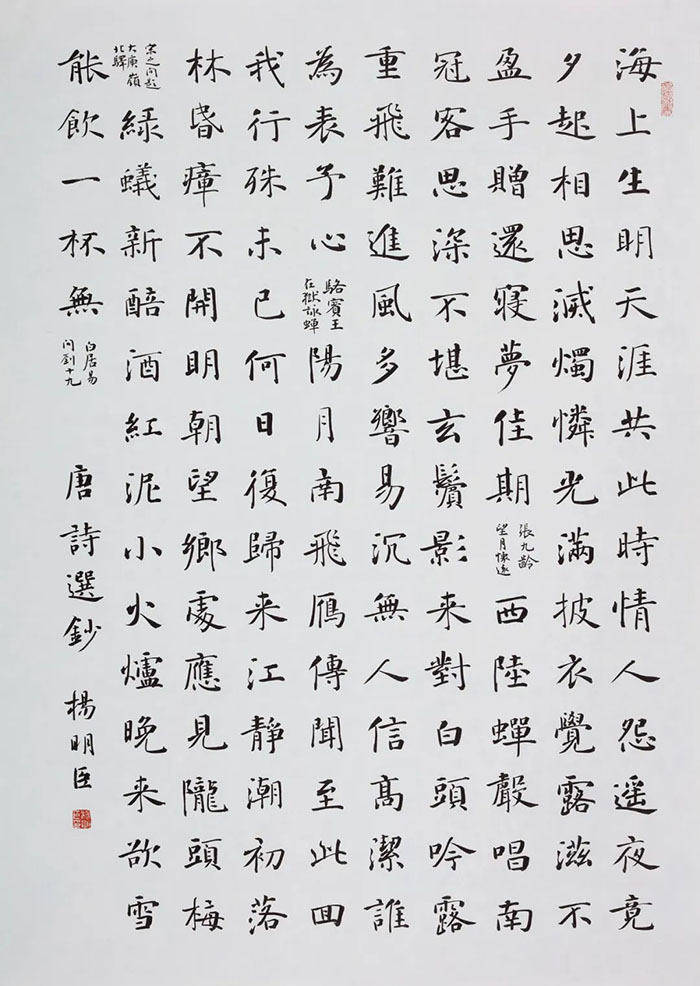 海上生明天涯共此時情人怨遥夜竟
夕起相思滅燭憐光滿披衣覺露滋不
盈手贈還寢夢佳期
張九齡
望月懷遠
西陸蟬聲唱南
冠客思深不堪玄鬢影来對白頭吟露
重飛難進風多響易沉無人信髙潔誰
為表予心
駱賓王
在獄咏蟬
陽月南飛鴈傳聞至此回
我行殊未已何日復歸来江靜潮初落
林昏瘴不開明朝望鄉處應見隴頭梅
宋之問題
大庾嶺
北驛
綠蟻新醅酒紅泥小火爐晚来欲雪
能飲一杯無
白居易
問劉十九
唐詩選鈔
楊明臣